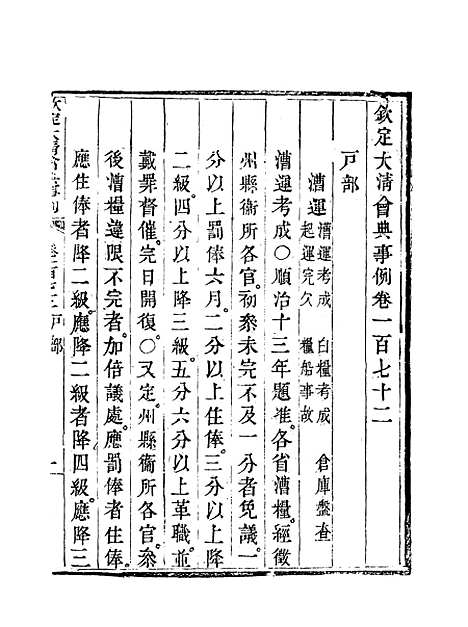 欽定大清會典事例卷一百七十二
戶部
漕運 漕運考成 白糧考成 倉庫盤查
起運完欠 糧船事故
漕運考成〇順治十三年題准各省漕糧經徵
州縣衞所各官初叅未完不及一分者免議一
分以上罰俸六月二分以上住俸三分以上降
二級四分以上降三級五分六分以上革職並
戴罪督催完日開復〇又定州縣衞所各官叅
後漕糧違限不完者加倍議處應罰俸者住俸
應住俸者降二級應降二級者降四級應降三
欽定大清會典事例 卷一百七十二 戶部 一